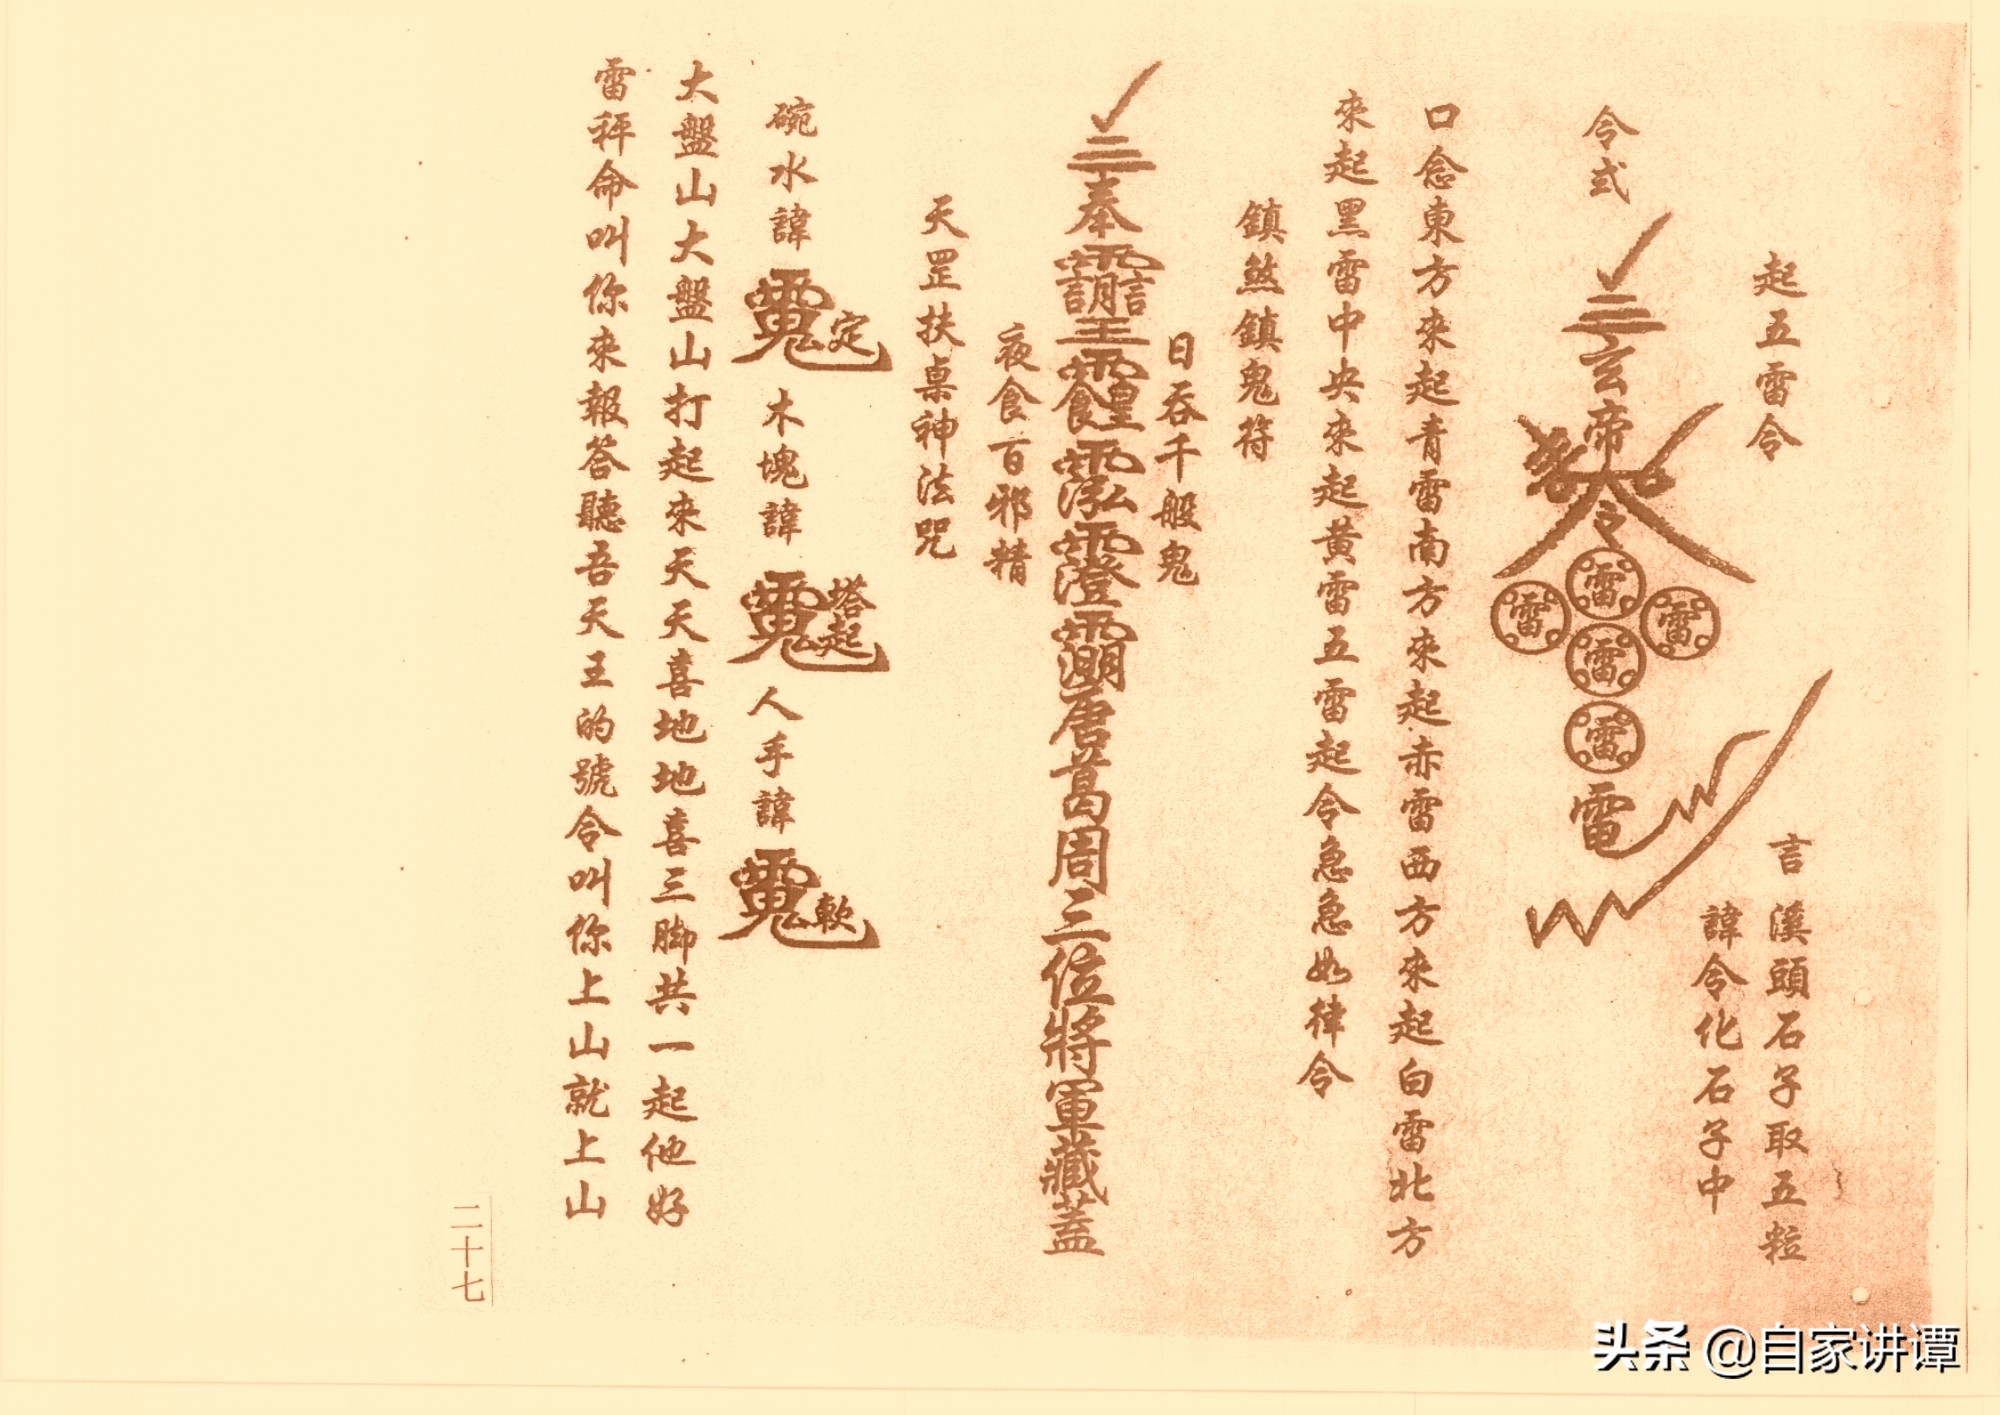 起五雷令
言溪頭石子取五粒
諱令化石子中
令式
玄帝
令
雷
雷 雷
雷
雷
電
口念東方來起青雷南方來起赤雷西方來起白雷北方
來起黑雷中央來起黃雷五雷起令急急如律令
鎮煞鎮鬼符
日吞千般鬼
三奉
唐葛周三位將軍藏蓋
夜食百邪精
天罡扶桌神法咒
碗水諱 定 木塊諱 塔起 人手諱 軟
大盤山大盤山打起來天天喜地地喜三脚共一起他好
雷秤命叫你來報答聽吾天王的號令叫你上山就上山
二十七
头条 @自家讲谭